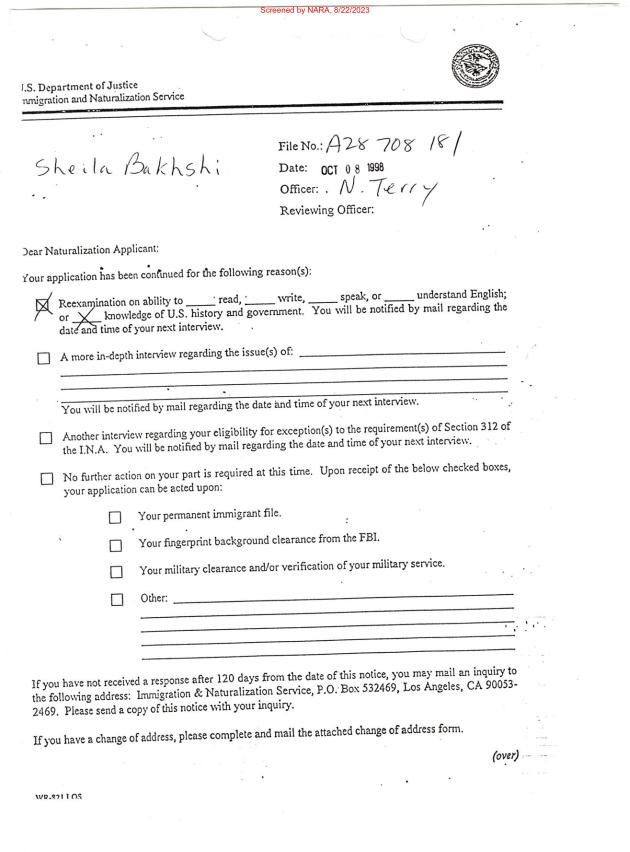 Screened by NARA, 8/22/2023
.S. Department of Justice
mmigration and Naturalization Service
Sheila Bakhshi
File No.: A28 708 181
Date: OCT 08 1998
Officer: N. Terry
Reviewing Officer:
Dear Naturalization Applicant:
Your application has been continued for the following reason(s):
☒ Reexamination on ability to _____ read, _____ write, _____ speak, or _____ understand English;
or __X__ knowledge of U.S. history and government. You will be notified by mail regarding the
date and time of your next interview.
☐ A more in-depth interview regarding the issue(s) of: _____
You will be notified by mail regarding the date and time of your next interview.
☐ Another interview regarding your eligibility for exception(s) to the requirement(s) of Section 312 of
the I.N.A. You will be notified by mail regarding the date and time of your next interview.
☐ No further action on your part is required at this time. Upon receipt of the below checked boxes,
your application can be acted upon:
☐ Your permanent immigrant file.
☐ Your fingerprint background clearance from the FBI.
☐ Your military clearance and/or verification of your military service.
☐ Other: _____
If you have not received a response after 120 days from the date of this notice, you may mail an inquiry to
the following address: Immigration & Naturalization Service, P.O. Box 532469, Los Angeles, CA 90053-
2469. Please send a copy of this notice with your inquiry.
If you have a change of address, please complete and mail the attached change of address form.
(over)